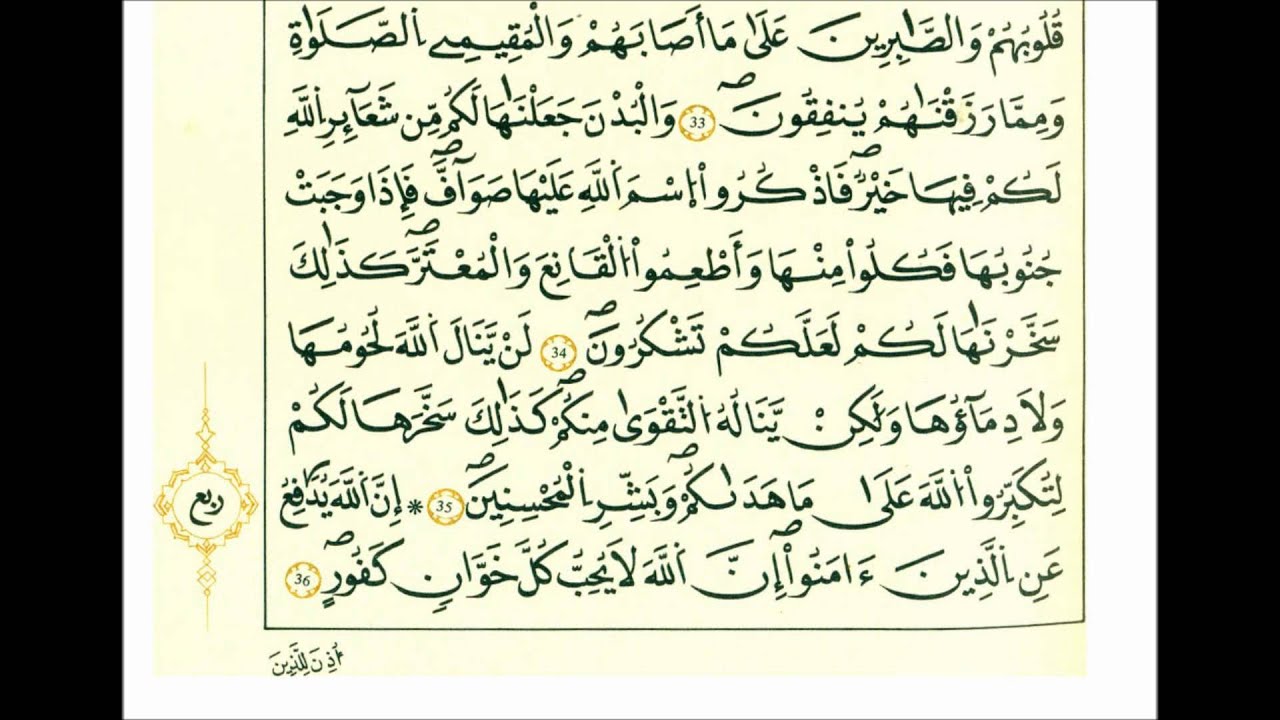 قُلُوبُهُمْ وَالصَّٰبِرِينَ عَلَىٰ مَا أَصَابَهُمْ وَالْمُقِيمِے اِ۬لصَّلَوٰةِ
وَمِمَّا رَزَقْنَٰهُمْ يُنفِقُونَۖ 33 وَالْبُدْنَ جَعَلْنَٰهَا لَكُم مِّن شَعَآئِرِ اِ۬للَّهِ
لَكُمْ فِيهَا خَيْرٌۖ فَاذْكُرُواْ اُ۪سْمَ اَ۬للَّهِ عَلَيْهَا صَوَآفَّۖ فَإِذَا وَجَبَتْ
جُنُوبُهَا فَكُلُواْ مِنْهَا وَأَطْعِمُواْ اُ۬لْقَانِعَ وَالْمُعْتَرَّۖ كَذَٰلِكَ
سَخَّرْنَٰهَا لَكُمْ لَعَلَّكُمْ تَشْكُرُونَۖ 34 لَنْ يَّنَالَ اَ۬للَّهَ لُحُومُهَا
وَلَا دِمَآؤُهَا وَلَٰكِنْ يَّنَالُهُ اُ۬لتَّقْوَىٰ مِنكُمْۖ كَذَٰلِكَ سَخَّرَهَا لَكُمْ
لِتُكَبِّرُواْ اُ۬للَّهَ عَلَىٰ مَا هَدَىٰكُمْۖ وَبَشِّرِ اِ۬لْمُحْسِنِينَۖ 35 * إِنَّ اَ۬للَّهَ يُدَٰفِعُ
عَنِ اِ۬لَّذِينَ ءَامَنُواْۖ إِنَّ اَ۬للَّهَ لَا يُحِبُّ كُلَّ خَوَّانٖ كَفُورٍۖ 36
ربع
اُذِنَ لِلَّذِينَ